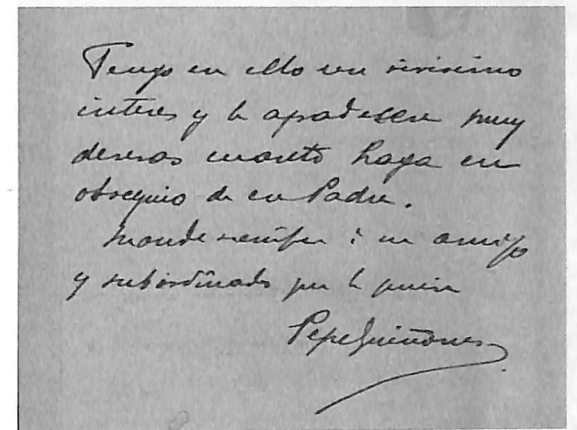 Tengo en ello un vivisimo
interes y le agradecere muy
deveras cuanto haga en
obsequio de su Padre.
Mande siempre á su amigo
y subordinado que le quiere
Pepe Quiñones